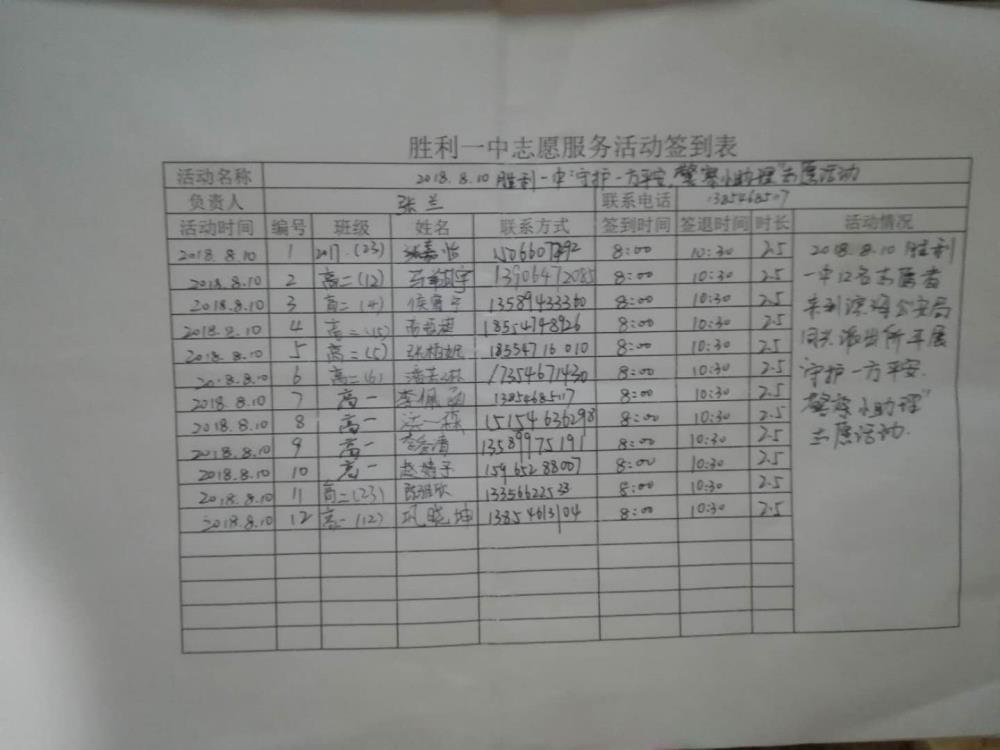 胜利一中志愿服务活动签到表
活动名称 2018.8.10 胜利一中"守护一方平安,警察小助理"志愿活动
负责人 张兰 联系电话 1385468507
活动时间 编号 班级 姓名 联系方式 签到时间 签退时间 时长 活动情况
2018.8.10 1 2017.(23) 怡 8:00 10:30 2.5
2018.8.10 2 高二(12) 宇 13906472085 8:00 10:30 2.5
2018.8.10 3 高二(4) 13589433360 8:00 10:30 2.5
2018.8.10 4 高二(15) 18554798926 8:00 10:30 2.5
2018.8.10 5 高二(5) 18554716010 8:00 10:30 2.5
2018.8.10 6 高二(6) 17354671430 8:00 10:30 2.5
2018.8.10 7 高一 李佩函 1385468507 8:00 10:30 2.5
2018.8.10 8 高一 15154636298 8:00 10:30 2.5
2018.8.10 9 高一 13589975191 8:00 10:30 2.5
2018.8.10 10 高一 赵婧子 15965288007 8:00 10:30 2.5
2018.8.10 11 高二(23) 8:00 10:30 2.5
2018.8.10 12 高一(12) 巩晓坤 13854613104 8:00 10:30 2.5
2018.8.10 胜利
一中12名志愿者
来到滨海公安局
同兴派出所开展
守护一方平安,
警察小助理"
志愿活动.